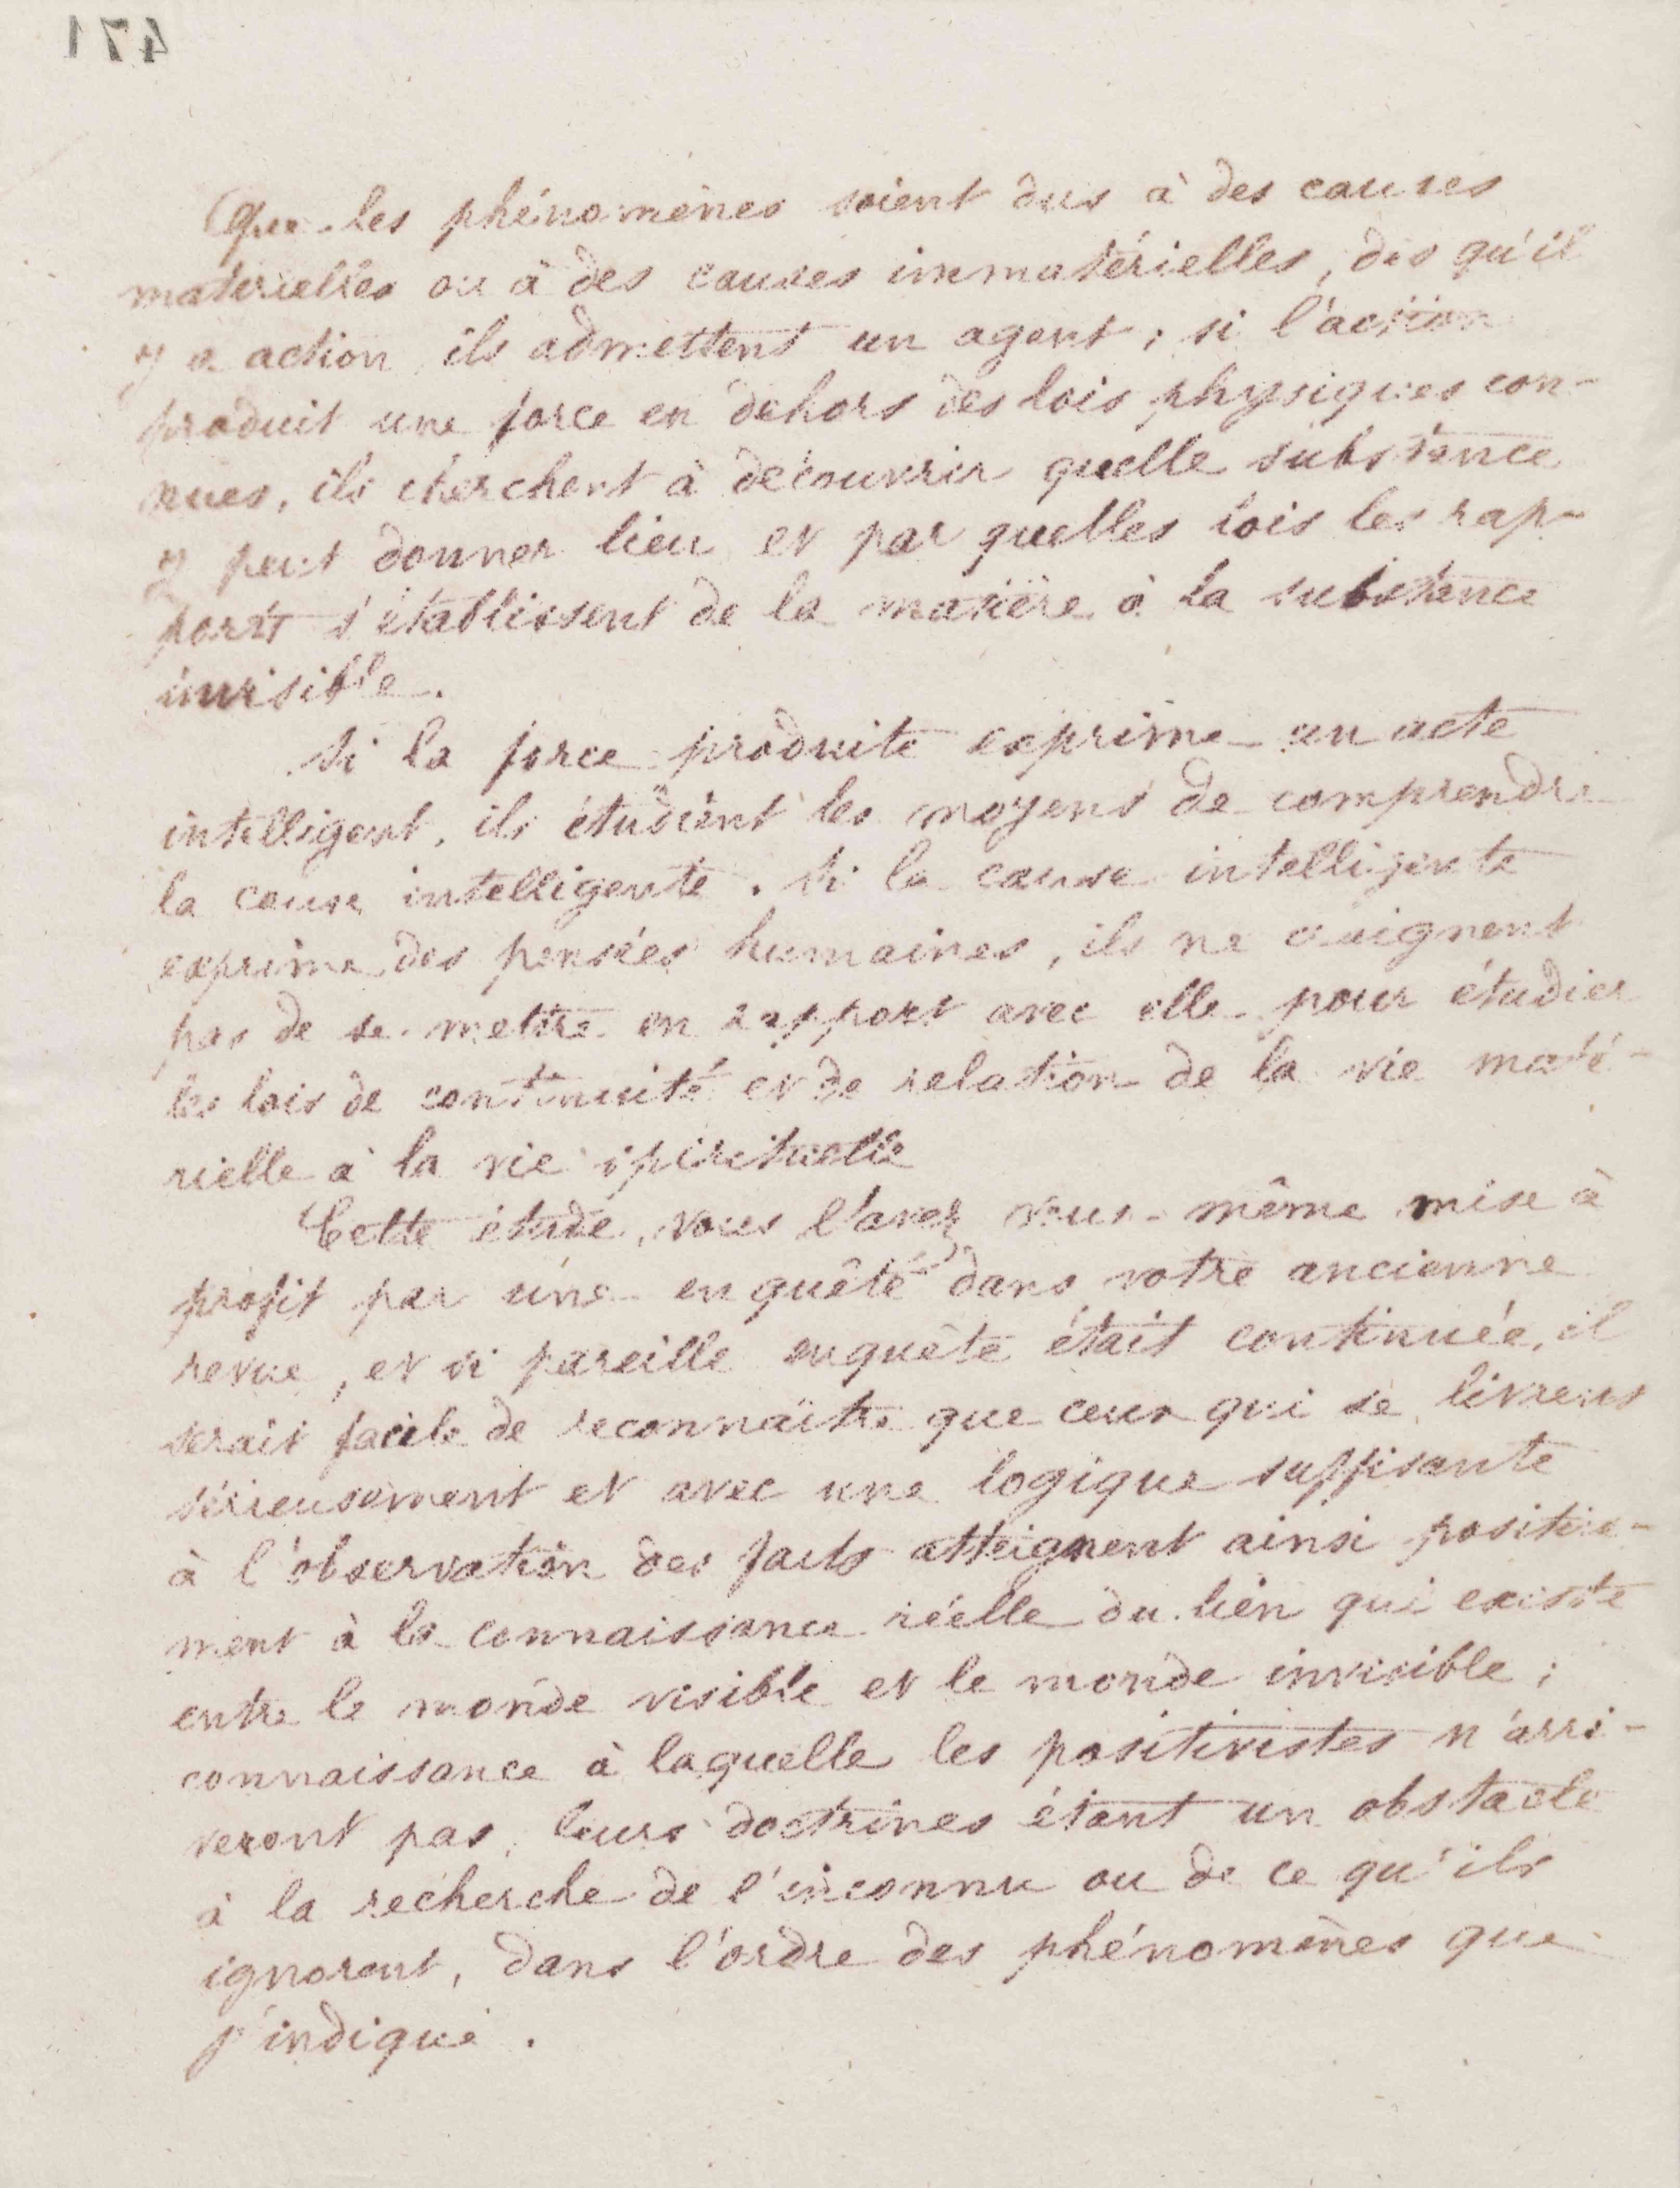 471
Que les phénomènes soient dus à des causes
matérielles ou à des causes immatérielles, dès qu'il
y a action ils admettent un agent ; si l'action
produit une force en dehors des lois physiques con-
nues, ils cherchent à découvrir quelle substance
y peut donner lieu et par quelles lois les rap-
ports s'établissent de la matière à la substance
invisible.
Si la force produite exprime un acte
intelligent, ils étudient les moyens de comprendre
la cause intelligente. Si la cause intelligente
exprime des pensées humaines, ils ne craignent
pas de se mettre en rapport avec elle pour étudier
les lois de continuité et de relation de la vie maté-
rielle à la vie spirituelle
Cette étude, vous l'avez vous-même mise à
profit par une enquête dans votre ancienne
revue, et si pareille enquête était continuée, il
serait facile de reconnaître que ceux qui se livrent
sérieusement et avec une logique suffisante
à l'observation des faits atteignent ainsi positive-
ment à la connaissance réelle du lien qui existe
entre le monde visible et le monde invisible ;
connaissance à laquelle les positivistes n'arri-
veront pas, leurs doctrines étant un obstacle
à la recherche de l'inconnu ou de ce qu'ils
ignorent, dans l'ordre des phénomènes que
j'indique.